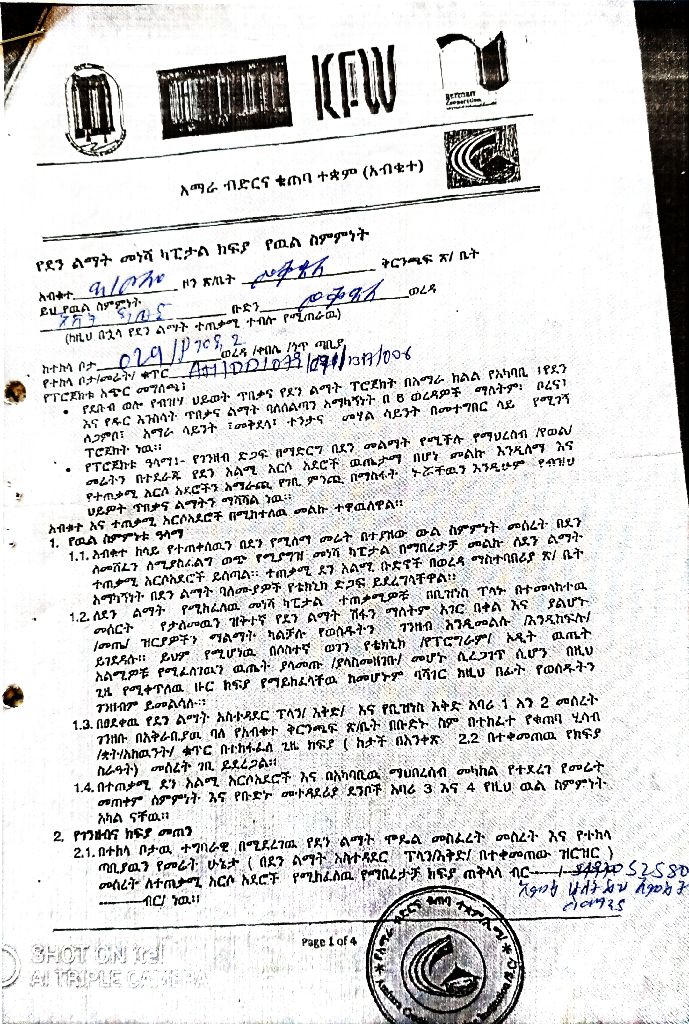 KFW
german
cooperation
አማራ ብድርና ቁጠባ ተቋም (አብቁተ)
የደን ልማት መነሻ ካፒታል ክፍያ የዉል ስምምነት
አብቁተ ዞን ጽ/ቤት መቅደላ ቅርንጫፍ ጽ/ ቤት
ይህ የዉል ስምምነት ቡድን መቅደላ ወረዳ
(ከዚህ በኋላ የደን ልማት ተጠቃሚ ተብሎ የሚጠራዉ)
ከተከላ ቦታ 029 ወረዳ /ቀበሌ /ንጥ ጣቢያ
የተከላ ቦታ/መሬት/ ቁጥር
የፕሮጀክቱ አጭር መግለጫ፤
• የደቡብ ወሎ የብዝሃ ህይወት ጥበቃና የደን ልማት ፕሮጀክት በአማራ ክልል የአካባቢ ፣የደን
እና የዱር እንስሳት ጥበቃና ልማት ባለስልጣን አማካኝነት በ 6 ወረዳዎች ማለትም፡ ቦረና፣
ለጋምቦ፣ አማራ ሳይንት ፣መቅደላ፣ ተንታና መሃል ሳይንት በመተግበር ላይ የሚገኝ
ፕሮጀክት ነዉ፡፡
• የፕሮጀክቱ ዓላማ፤- የገንዘብ ድጋፍ በማድረግ በደን መልማት የሚችሉ የማህረሰብ /የወል/
መሬትን በተደራጁ የደን አልሚ አርሶ አደሮች ዉጤታማ በሆነ መልኩ እንዲለማ እና
የተጠቃሚ አርሶ አደሮችን አማራጪ የገቢ ምንጪ በማስፋት ኑሯቸዉን እንዲሁም የብዝሀ
ህይዎት ጥበቃና ልማትን ማሻሻል ነዉ፡፡
አብቁተ እና ተጠቃሚ አርሶአደሮች በሚከተለዉ መልኩ ተዋዉለዋል፡፡
1. የዉል ስምምነቱ ዓላማ
1.1. አብቁተ ከላይ የተጠቀሰዉን በደን የሚለማ መሬት በተያዘዉ ውል ስምምነት መሰረት በደን
ለመሸፈን ለሚያስፈልግ ወጭ የሚያግዝ መነሻ ካፒታል በማበረታቻ መልኩ ለደን ልማት
ተጠቃሚ አርሶአደሮች ይሰጣል፡፡ ተጠቃሚ ደን አልሚ ቡድኖች በወረዳ ማስተባበሪያ ጽ/ ቤት
አማካኝነት በደን ልማት ባለሙያዎች የቴክኒክ ድጋፍ ይደረግላቸዋል፡፡
1.2. ለደን ልማት የሚከፈለዉ መነሻ ካፒታል ተጠቃሚዎቹ በቢዝነስ ፕላኑ በተመላከተዉ
መሰርት የታለመዉን ዝቅተኛ የደን ልማት ሽፋን ማለትም አገር በቀል እና ያልሆኑ
/መጤ/ ዝርያዎችን ማልማት ካልቻሉ የወሰዱትን ገንዘብ እንዲመልሱ /እንዲከፍሉ/
ይገደዳሉ፡፡ ይህም የሚሆነዉ በሶስተኛ ወገን የቴክኒክ /የፕሮግራም/ ኦዲት ዉጤት
አልሚዎቹ የሚፈለገዉን ዉጤት ያላመጡ /ያላስመዘገቡ/ መሆኑ ሲረጋገጥ ሲሆን በዚህ
ጊዜ የሚቀጥለዉ ዙር ክፍያ የማይከፈላቸዉ ከመሆኑም ባሻገር ከዚህ በፊት የወሰዱትን
ገንዘብም ይመልሳሉ፡፡
1.3. በፀደቀዉ የደን ልማት አስተዳደር ፕላን/ እቅድ/ እና የቢዝነስ እቅድ አባሪ 1 እን 2 መሰረት
ገንዘቡ በአቅራቢያዉ ባለ የአብቁተ ቅርንጫፍ ጽ/ቤት በቡድኑ ስም በተከፈተ የቁጠባ ሂሳብ
/ቋት/አካዉንት/ ቁጥር በተከፋፈለ ጊዜ ክፍያ ( ከታች በአንቀጽ 2.2 በተቀመጠዉ የክፍያ
ስራዓት) መሰረት ገቢ ይደረጋል፡፡
1.4. በተጠቃሚ ደን አልሚ አርሶአደሮች እና በአካባቢዉ ማህበረሰብ መካከል የተደረገ የመሬት
መጠቀም ስምምነት እና የቡድኑ መተዳደሪያ ደንቦች አባሪ 3 እና 4 የዚህ ዉል ስምምነት
አካል ናቸዉ፡፡
2. የገንዘብና ክፍያ መጠን
2.1. በተከላ ቦታዉ ተግባራዊ በሚደረገዉ የደን ልማት ሞዴል መስፈረት መሰረት እና የተከላ
ጣቢያዉን የመሬት ሁኔታ ( በደን ልማት አስተዳደር ፕላን/እቅድ/ በተቀመጠዉ ዝርዝር )
መሰረት ለተጠቃሚ አርሶ አደሮች የሚከፈለዉ የማበረታቻ ክፍያ ጠቅላላ ብር
ብር/ ነዉ፡፡
Page 1 of 4
SHOT ON itel
AI TRIPLE CAMERA